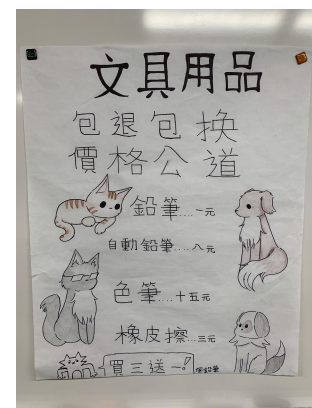 文具用品
包退包換
價格公道
鉛筆....一元
自動鉛筆....八元
色筆....十五元
橡皮擦....三元
買三送一!